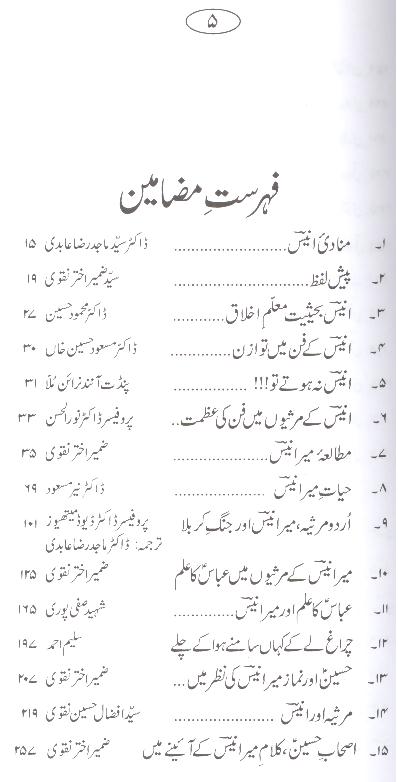 ۵
فہرستِ مضامین
۱۔ منادیٔ انیسؔ ............................ ڈاکٹر سیّد ماجد رضا عابدی ۱۵
۲۔ پیش لفظ ................................ سیّد ضمیر اختر نقوی ۱۹
۳۔ انیسؔ بحیثیت معلّمِ اخلاق ............ ڈاکٹر محمود حسین ۲۷
۴۔ انیسؔ کے فن میں توازن ............... ڈاکٹر مسعود حسین خاں ۳۰
۵۔ انیسؔ نہ ہوتے تو!!! ................ پنڈت آنند نرائن مُلّا ۳۱
۶۔ انیسؔ کے مرثیوں میں فن کی عظمت.. پروفیسر ڈاکٹر نور الحسن ۳۳
۷۔ مطالعۂ میر انیسؔ ...................... ضمیر اختر نقوی ۳۵
۸۔ حیاتِ میر انیسؔ ..................... ڈاکٹر نیر مسعود ۶۹
۹۔ اُردو مرثیہ، میر انیسؔ اور جنگِ کربلا پروفیسر ڈاکٹر ڈیوڈ میتھیوز ۱۰۱
ترجمہ: ڈاکٹر ماجد رضا عابدی
۱۰۔ میر انیسؔ کے مرثیوں میں عباسؑ کا علم ضمیر اختر نقوی ۱۲۵
۱۱۔ عباسؑ کا علم اور میر انیسؔ .............. شہید صفی پوری ۱۶۵
۱۲۔ چراغ لے کے کہاں سامنے ہوا کے چلے سلیم احمد ۱۹۷
۱۳۔ حسینؑ اور نماز میر انیسؔ کی نظر میں ... ضمیر اختر نقوی ۲۰۷
۱۴۔ مرثیہ اور انیسؔ ....................... سیّد افضال حسین نقوی ۲۱۹
۱۵۔ اصحابِ حسینؑ، کلامِ میر انیسؔ کے آئینے میں ضمیر اختر نقوی ۲۵۷